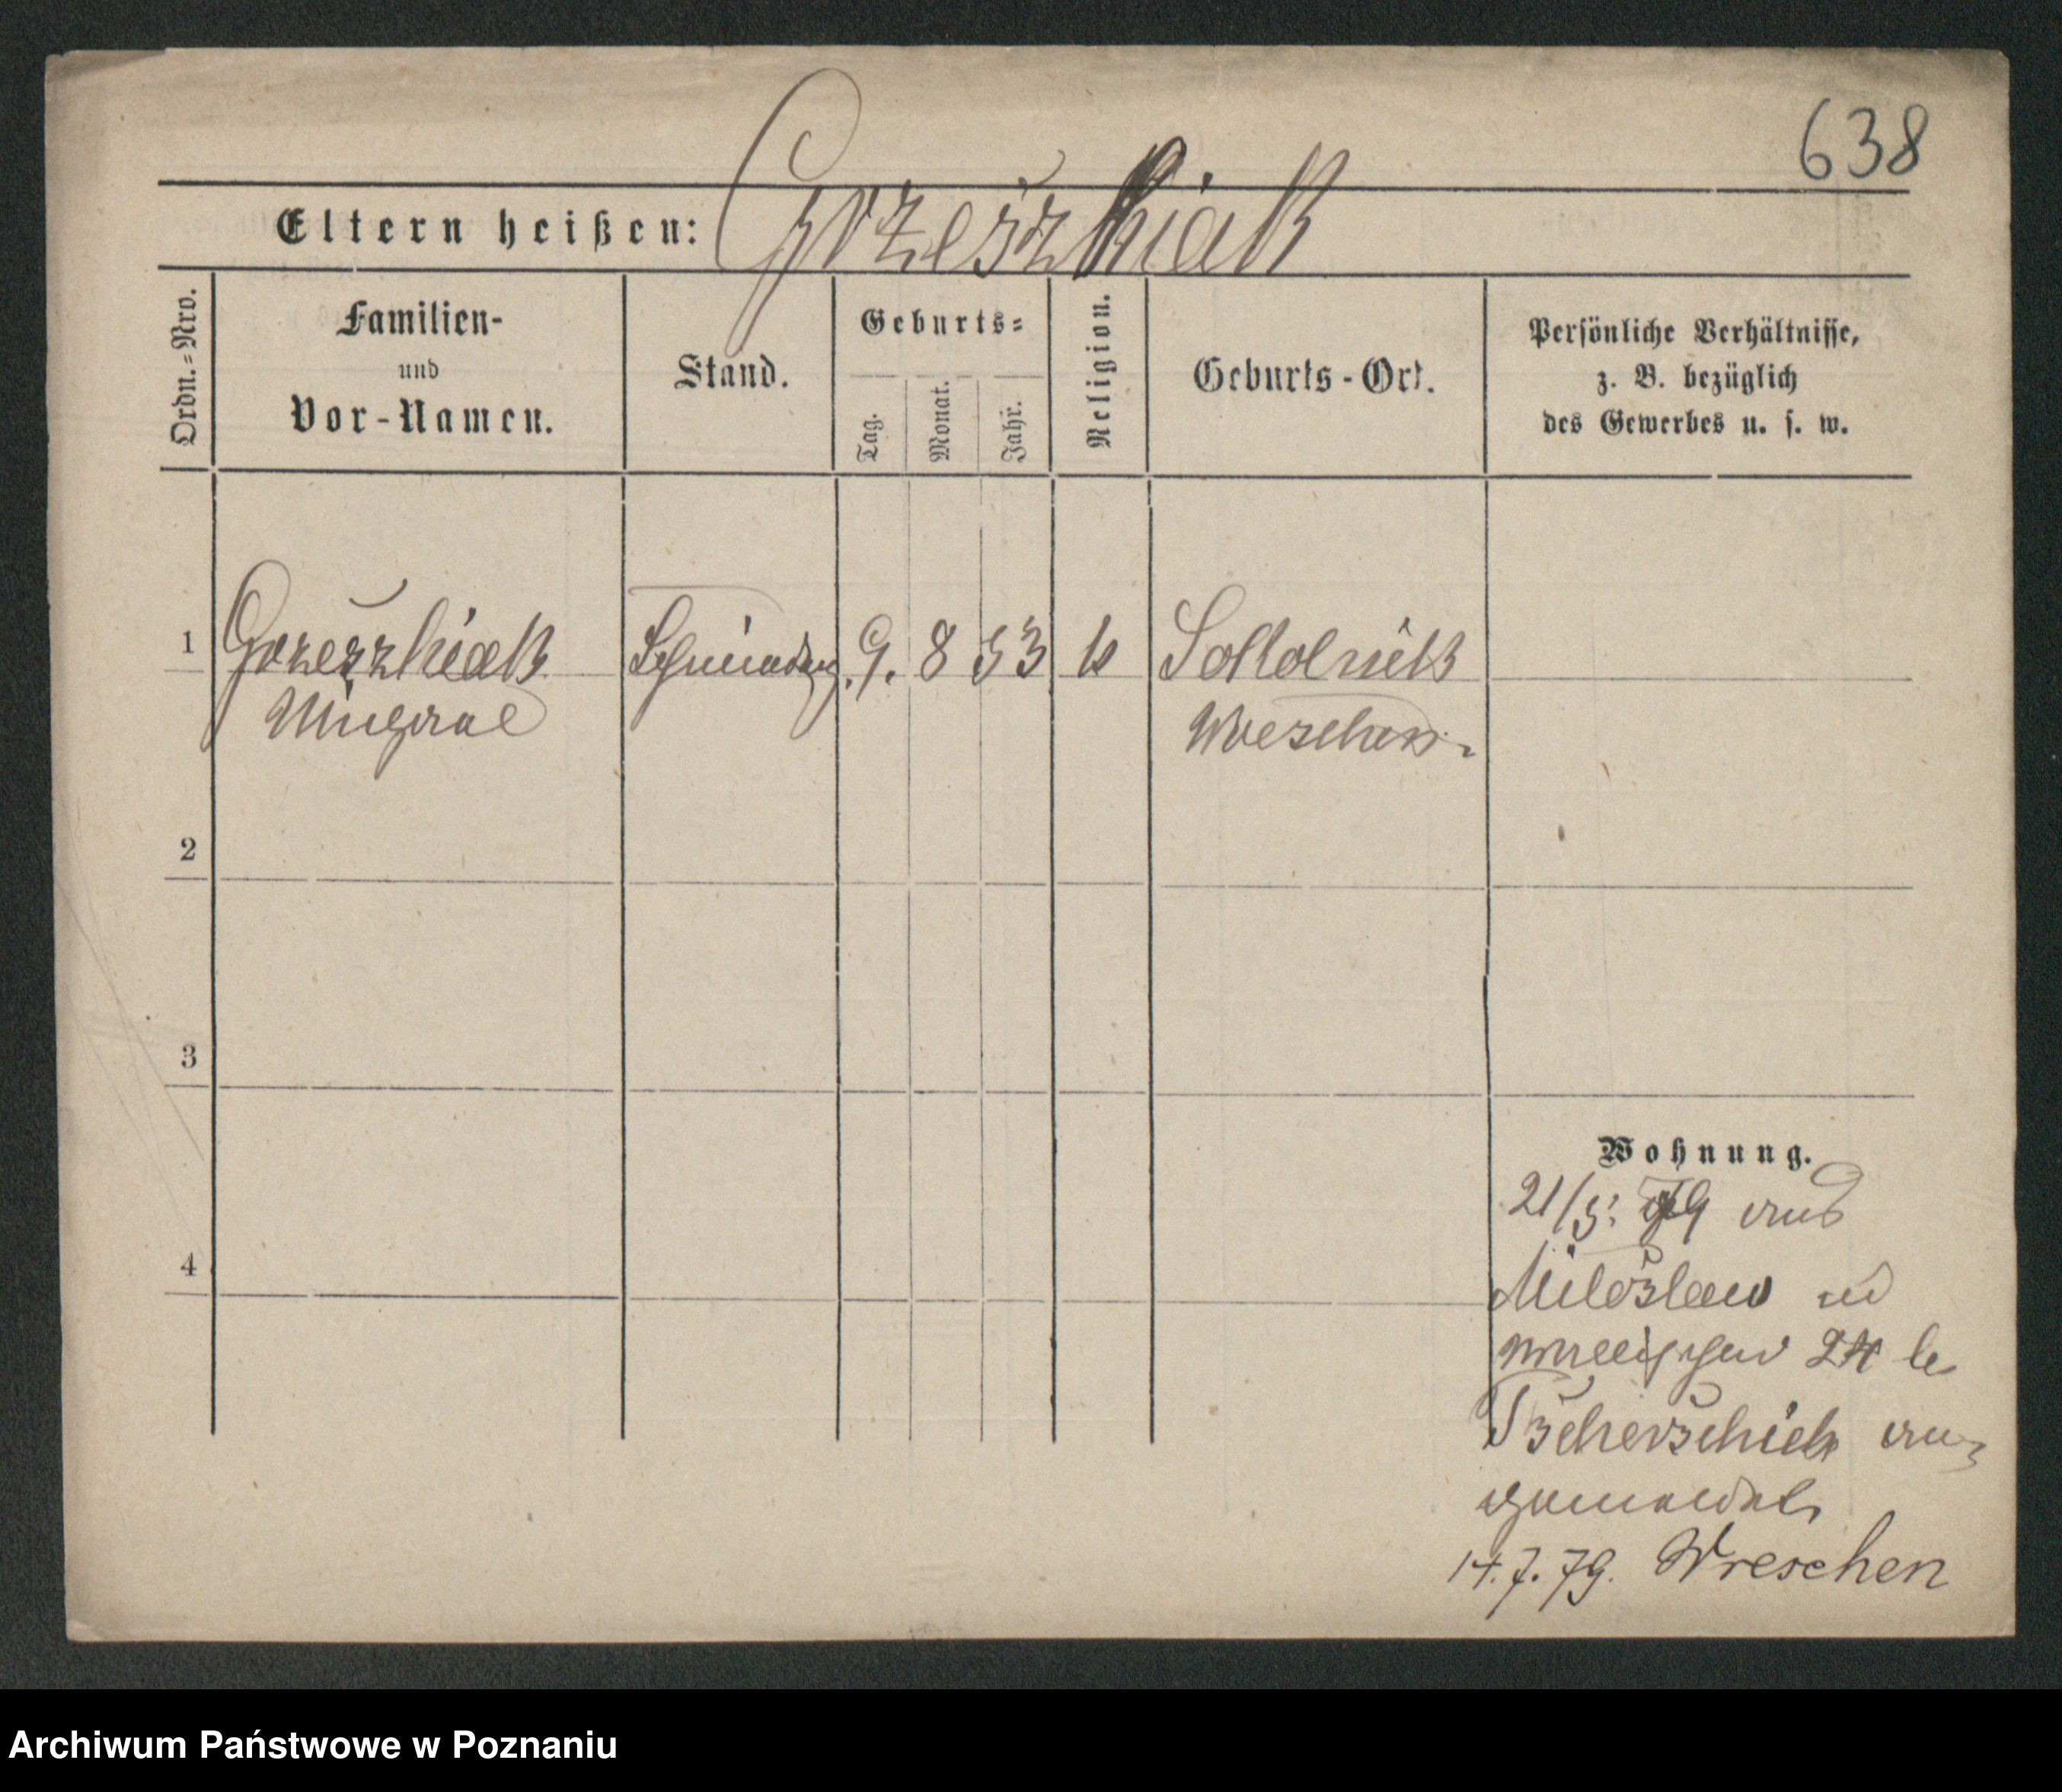 638
Eltern heißen: Grzeszkiak
Ordn.-Nro.
Familien-
und
Vor-Namen.
Stand.
Geburts-
Tag.
Monat.
Jahr.
Religion.
Geburts-Ort.
Persönliche Verhältnisse,
z. B. bezüglich
des Gewerbes u. s. w.
1 Grzeszkiak 9. 8 53 k Sokolnik
Michael Wreschen
2
3
Wohnung.
21/5. 79 aus
4
Miloslaw
24 b
Tscherschick an-
gemeldet
14.7.79. Wreschen
Archiwum Państwowe w Poznaniu